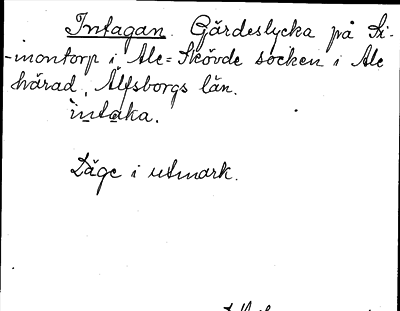 Intagan. Gärdeslycka på Si-
-montorp i Ale=Skövde socken i Ale
härad, Älfsborgs län.
ìntàka.
Läge i utmark.